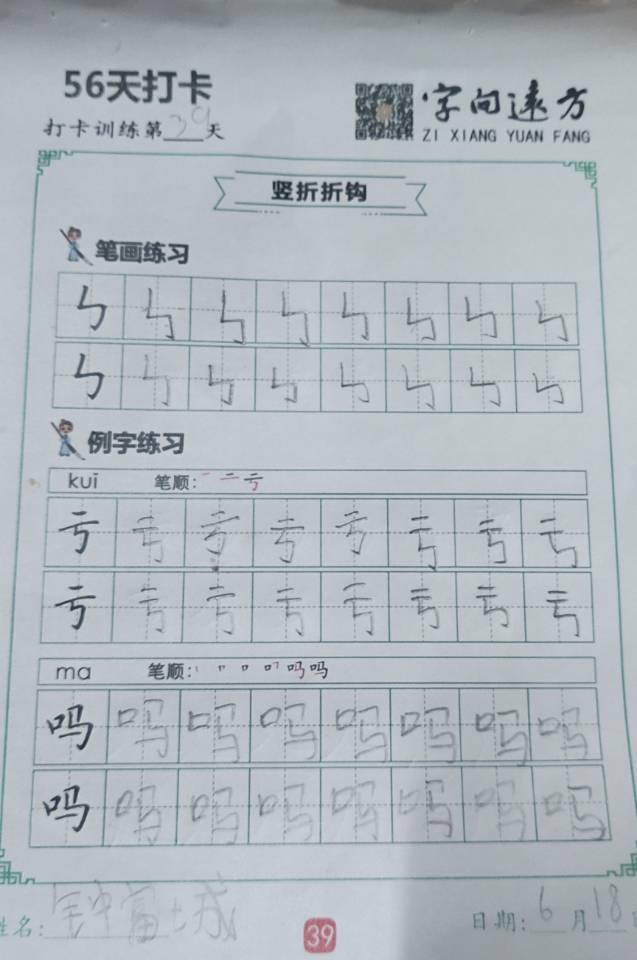 56天打卡
字向远方
打卡训练第39天
ZI XIANG YUAN FANG
竖折折钩
笔画练习
㇉ ㇉ ㇉ ㇉ ㇉ ㇉ ㇉ ㇉
㇉ ㇉ ㇉ ㇉ ㇉ ㇉ ㇉ ㇉
例字练习
kui 笔顺: 一 二 亏
亏 亏 亏 亏 亏 亏 亏 亏
亏 亏 亏 亏 亏 亏 亏 亏
ma 笔顺: 吗 吗
吗 吗 吗 吗 吗 吗 吗 吗
吗 吗 吗 吗 吗 吗 吗 吗
姓名: 日期: 6 月 18 日
39